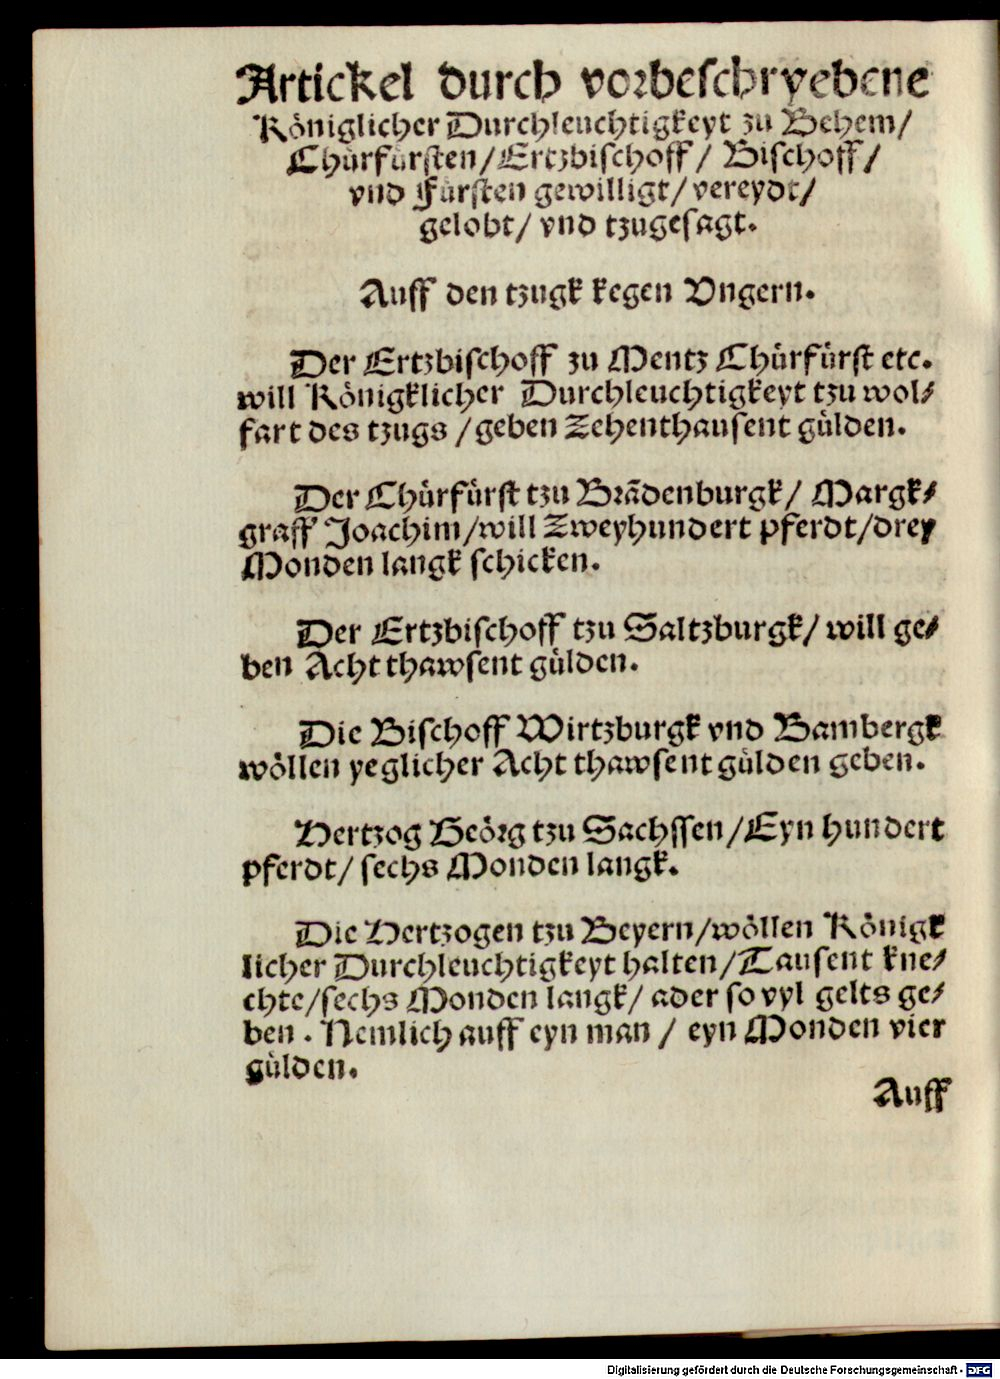 Artickel durch vorbeschryebene
Königlicher Durchleuchtigkeyt zu Behem/
Chürfürsten/Ertzbischoff/ Bischoff/
vnd Fürsten gewilligt/ vereydt/
gelobt/ vnd tzugesagt.
Auff den tzugk kegen Vngern.
Der Ertzbischoff zu Mentz Chürfürst etc.
will Königklicher Durchleuchtigkeyt tzu wol⸗
fart des tzugs /geben Zehenthausent gülden.
Der Chürfürst tzu Brãdenburgk/ Margk⸗
graff Joachim/will Zweyhundert pferdt/drey
Monden langk schicken.
Der Ertzbischoff tzu Saltzburgk/ will ge⸗
ben Acht thawsent gülden.
Die Bischoff Wirtzburgk vnd Bambergk
wöllen yeglicher Acht thawsent gülden geben.
Hertzog Geörg tzu Sachssen/Eyn hundert
pferdt/ sechs Monden langk.
Die Hertzogen tzu Beyern/wöllen Königk
licher Durchleuchtigkeyt halten/Tausent kne⸗
chte/sechs Monden langk/ ader so vyl gelts ge⸗
ben . Nemlich auff eyn man / eyn Monden vier
gülden.
Auff
Digitalisierung gefördert durch die Deutsche Forschungsgemeinschaft - DFG